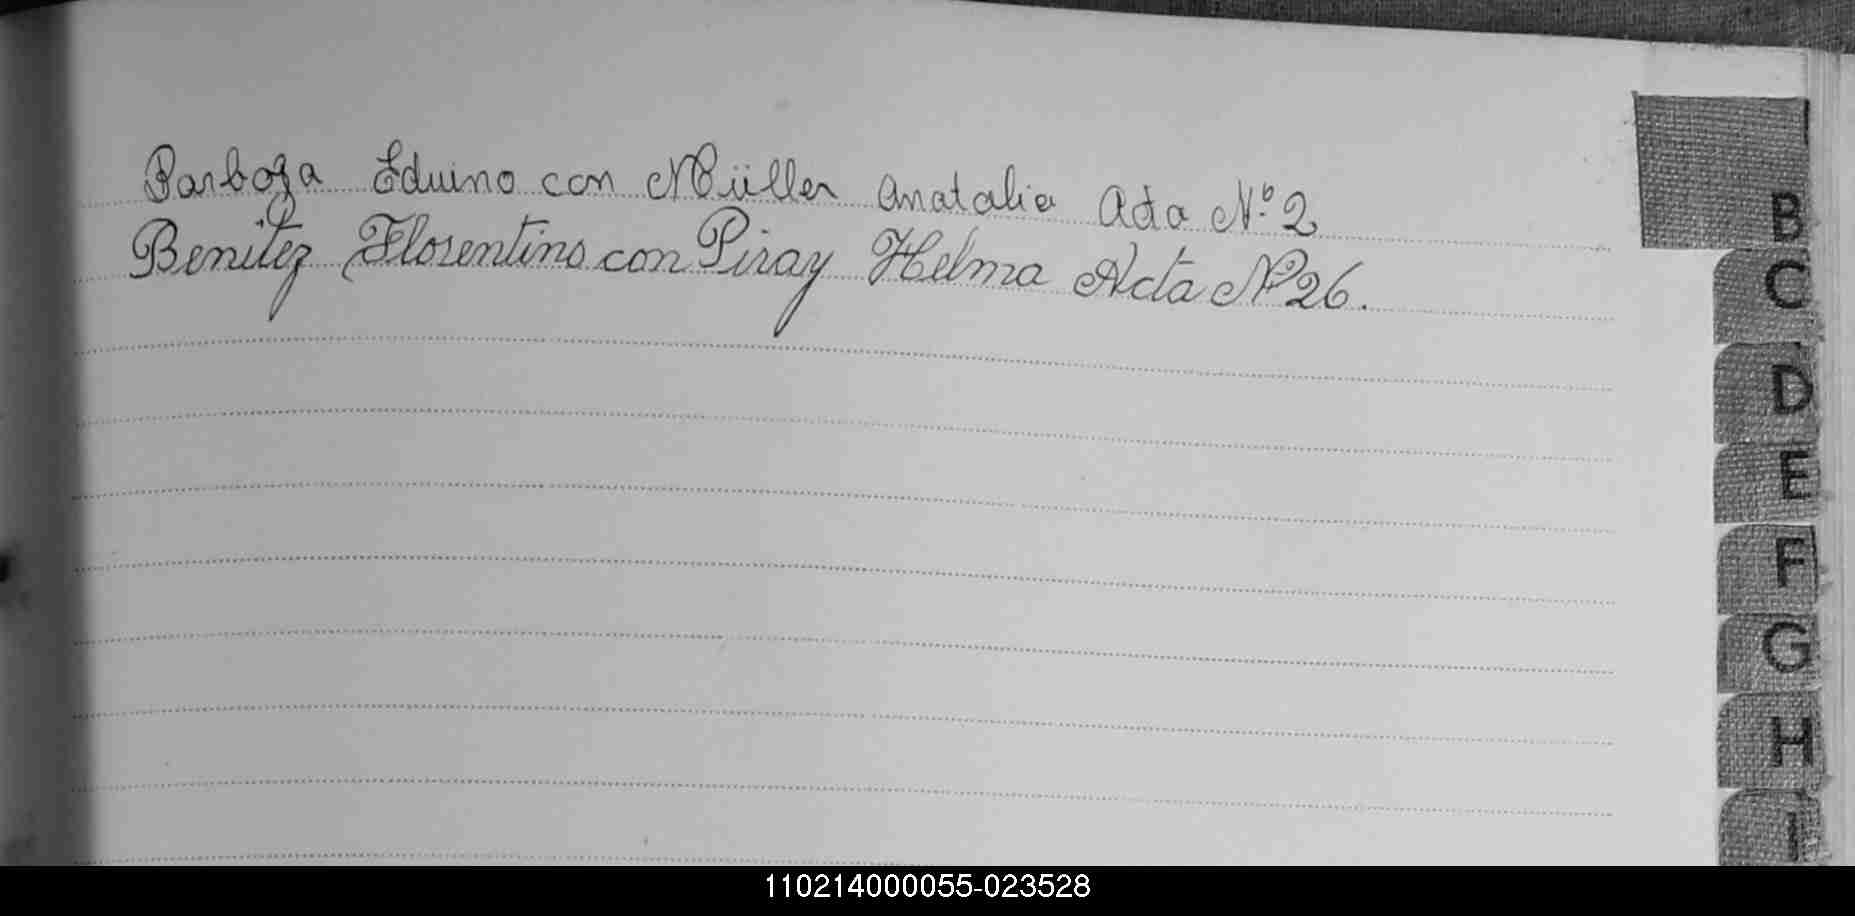 Barboza Eduino con Müller Anatalia Acta Nº 2
Benitez Florentino con Piray Helma Acta Nº 26.
B
C
D
E
F
G
H
I
110214000055-023528